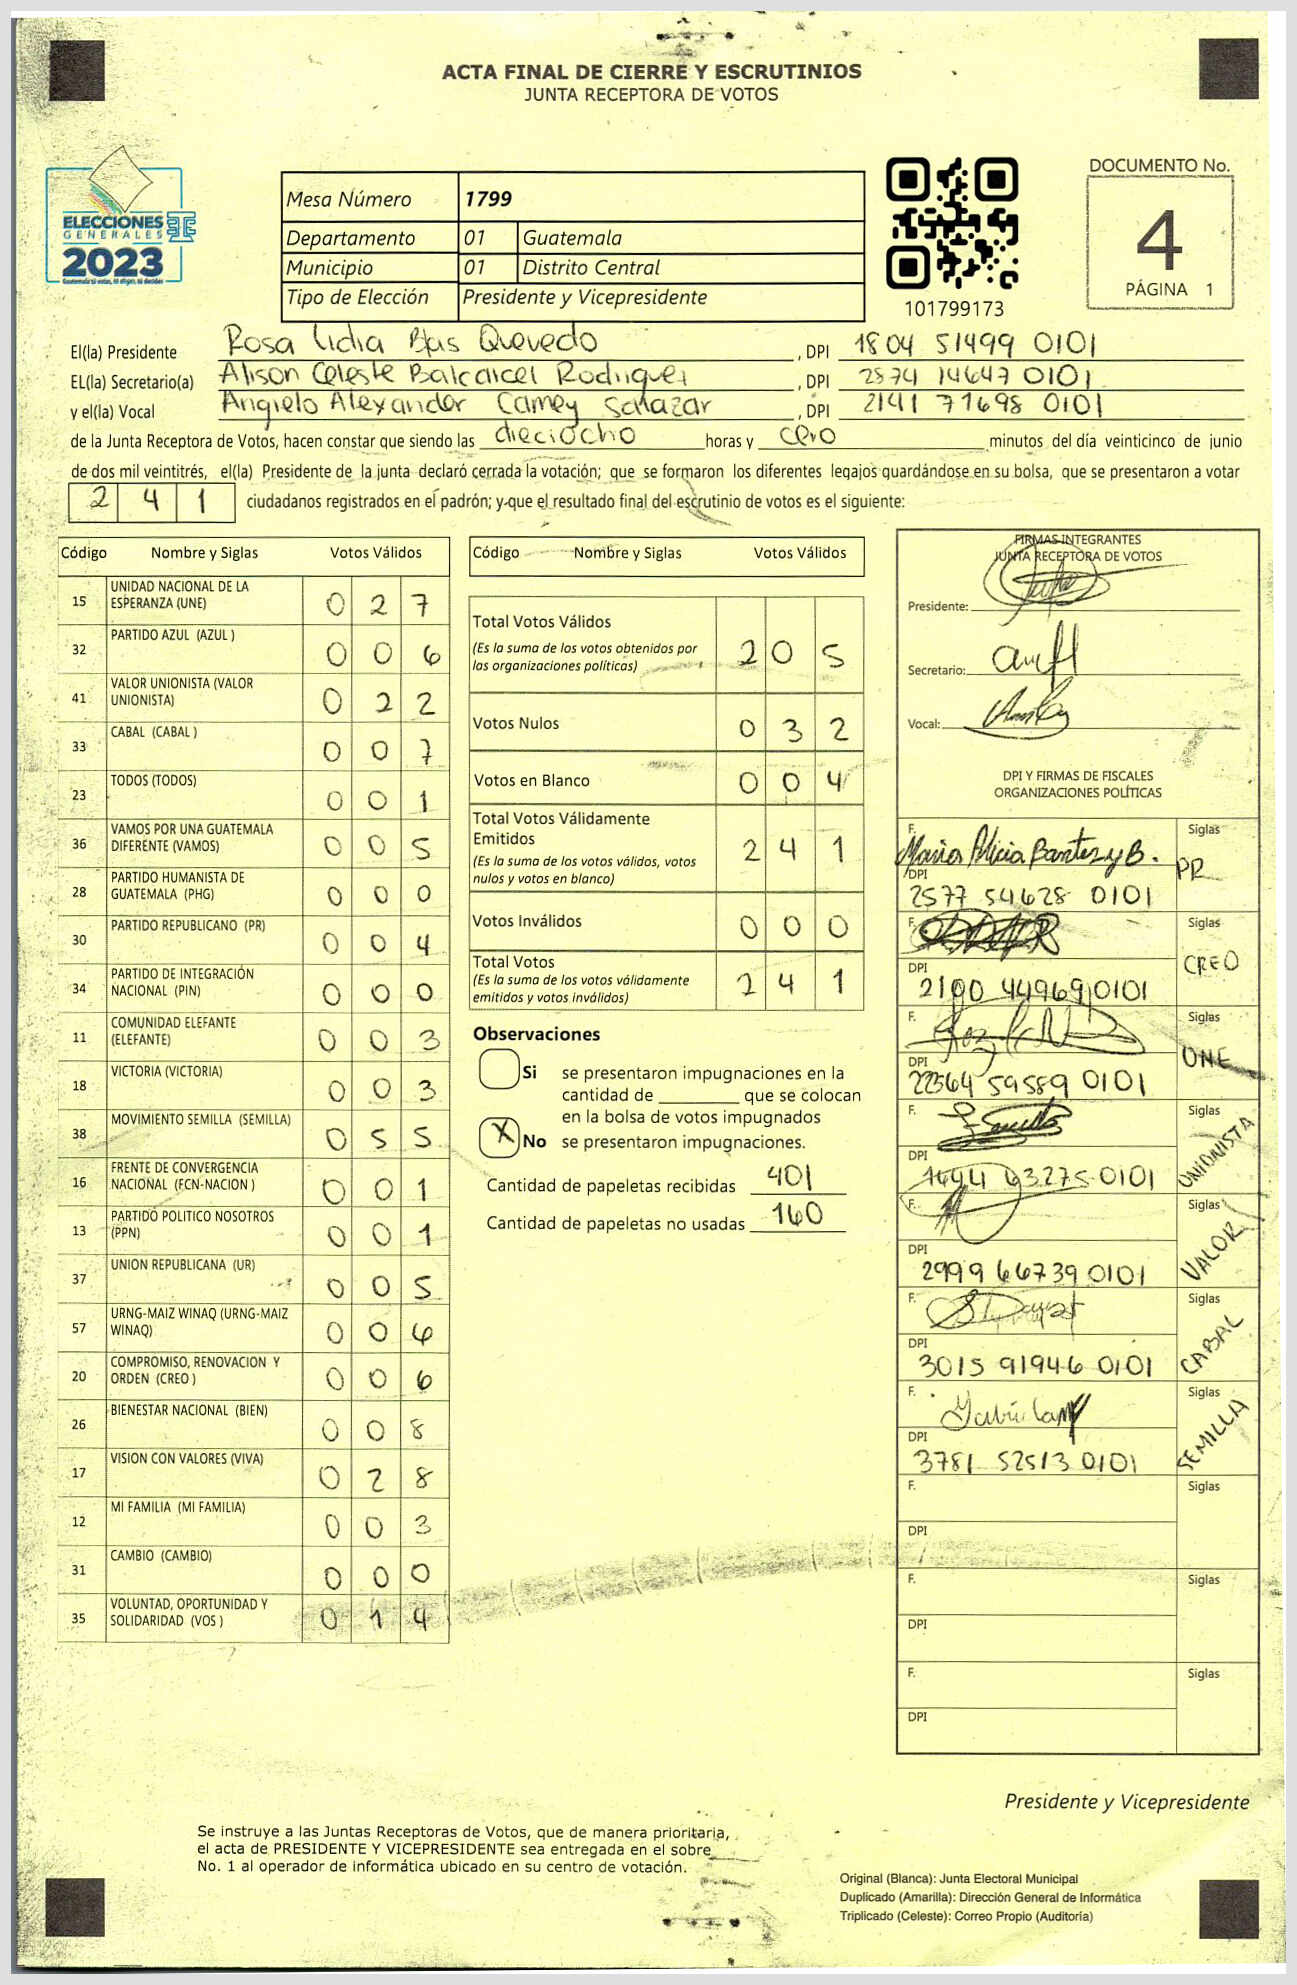 ACTA FINAL DE CIERRE Y ESCRUTINIOS
JUNTA RECEPTORA DE VOTOS
ELECCIONES
GENERALES
2023
Mesa Número 1799
Departamento 01 Guatemala
Municipio 01 Distrito Central
Tipo de Elección Presidente y Vicepresidente
101799173
DOCUMENTO No.
4
PÁGINA 1
El(la) Presidente Rosa Lidia Blas Quevedo, DPI 1804 51499 0101
EL(la) Secretario(a) Alison Celeste Balcarcel Rodriguez, DPI 2874 14647 0101
y el(la) Vocal Angielo Alexander Camey Salazar, DPI 2141 71698 0101
de la Junta Receptora de Votos, hacen constar que siendo las dieciocho horas y cero minutos del día veinticinco de junio
de dos mil veintitrés, el(la) Presidente de la junta declaró cerrada la votación; que se formaron los diferentes legajos guardándose en su bolsa, que se presentaron a votar
2 4 1 ciudadanos registrados en el padrón; y que el resultado final del escrutinio de votos es el siguiente:
Código Nombre y Siglas Votos Válidos
15 UNIDAD NACIONAL DE LA ESPERANZA (UNE) 0 2 7
32 PARTIDO AZUL (AZUL ) 0 0 6
41 VALOR UNIONISTA (VALOR UNIONISTA) 0 2 2
33 CABAL (CABAL ) 0 0 7
23 TODOS (TODOS) 0 0 1
36 VAMOS POR UNA GUATEMALA DIFERENTE (VAMOS) 0 0 5
28 PARTIDO HUMANISTA DE GUATEMALA (PHG) 0 0 0
30 PARTIDO REPUBLICANO (PR) 0 0 4
34 PARTIDO DE INTEGRACIÓN NACIONAL (PIN) 0 0 0
11 COMUNIDAD ELEFANTE (ELEFANTE) 0 0 3
18 VICTORIA (VICTORIA) 0 0 3
38 MOVIMIENTO SEMILLA (SEMILLA) 0 5 5
16 FRENTE DE CONVERGENCIA NACIONAL (FCN-NACION ) 0 0 1
13 PARTIDO POLITICO NOSOTROS (PPN) 0 0 1
37 UNION REPUBLICANA (UR) 0 0 5
57 URNG-MAIZ WINAQ (URNG-MAIZ WINAQ) 0 0 6
20 COMPROMISO, RENOVACION Y ORDEN (CREO ) 0 0 6
26 BIENESTAR NACIONAL (BIEN) 0 0 8
17 VISION CON VALORES (VIVA) 0 2 8
12 MI FAMILIA (MI FAMILIA) 0 0 3
31 CAMBIO (CAMBIO) 0 0 0
35 VOLUNTAD, OPORTUNIDAD Y SOLIDARIDAD (VOS ) 0 1 4
Código Nombre y Siglas Votos Válidos
Total Votos Válidos 2 0 5
(Es la suma de los votos obtenidos por
las organizaciones políticas)
Votos Nulos 0 3 2
Votos en Blanco 0 0 4
Total Votos Válidamente
Emitidos 2 4 1
(Es la suma de los votos válidos, votos
nulos y votos en blanco)
Votos Inválidos 0 0 0
Total Votos 2 4 1
(Es la suma de los votos válidamente
emitidos y votos inválidos)
Observaciones
Si se presentaron impugnaciones en la
cantidad de ________ que se colocan
en la bolsa de votos impugnados
X No se presentaron impugnaciones.
Cantidad de papeletas recibidas 401
Cantidad de papeletas no usadas 160
FIRMAS INTEGRANTES
JUNTA RECEPTORA DE VOTOS
Presidente:
Secretario:
Vocal:
DPI Y FIRMAS DE FISCALES
ORGANIZACIONES POLÍTICAS
F. Maria Alicia Siglas
DPI 2577 54628 0101 PR
F. Siglas
DPI 2100 44969 0101 CREO
F. Siglas
DPI 22564 59589 0101 UNE
F. Siglas
DPI 1494 63275 0101 UNIONISTA
F. Siglas
DPI 2999 66739 0101 VALOR
F. Siglas
DPI 3015 91946 0101 CABAL
F. Siglas
DPI 3781 52513 0101 SEMILLA
F. Siglas
DPI
F. Siglas
DPI
F. Siglas
DPI
Presidente y Vicepresidente
Se instruye a las Juntas Receptoras de Votos, que de manera prioritaria,
el acta de PRESIDENTE Y VICEPRESIDENTE sea entregada en el sobre
No. 1 al operador de informática ubicado en su centro de votación.
Original (Blanca): Junta Electoral Municipal
Duplicado (Amarilla): Dirección General de Informática
Triplicado (Celeste): Correo Propio (Auditoría)